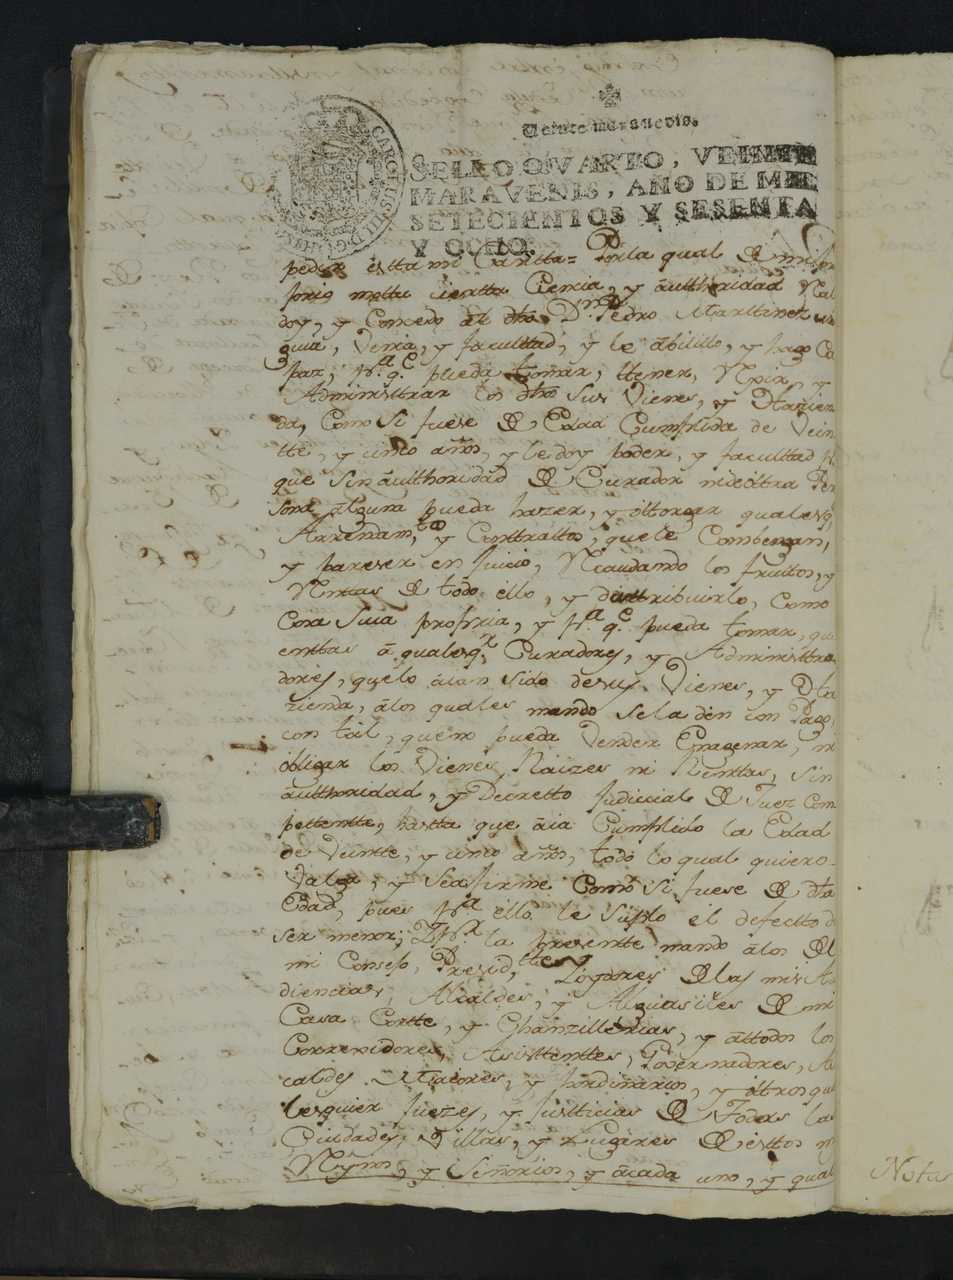 Veinte maravedis.
SELLO QVARTO, VEINTE
MARAVEDIS, AÑO DE MIL
SETECIENTOS Y SESENTA
Y OCHO.
CAROLUS III D. G. HISP
pedir estta mi Cartta = Por la qual de mi
proprio mottu cientta Ciencia, y authoridad Real
doy, y Concedo al dho Dn. Pedro Martinez
guia, Venia, y facultad, y le abilitto, y hago Ca
paz, pa. qe. pueda tomar, ttener, Rejir, y
Administtrar los dhos sus Vienes, y Hazien
da, Como Si fuese de Edad Cumplida de Vein
tte, y cinco años, y le doy poder, y facultad pa.
que sin authoridad de Curador ni de ottra Per
sona alguna pueda hazer, y ottorgar qualesqr.
Arrendamtos, y Conttrattos, que le Combengan,
y pareser en Juicio, Recaudando los fruttos, y
Renttas de todo ello, y disttribuirlo, como
Cosa Suia propria, y pa. qe. pueda tomar, qu
enttas a qualesqr. Curadores, y Administtra
dores, que lo aian sido de sus Vienes, y Ha
zienda, a los quales mando se la den con Pago,
con tal, que no pueda Vender Enagenar, ni
obligar los Vienes Raizes ni Renttas, Sin
authoridad, y Decretto Judicial de Juez Com
pettentte, hastta que aia Cumplido la Edad
de Veintte, y cinco años, todo lo qual quiero
Valga, y Sea firme Como si fuese de dha
Edad, pues pa. ello le Suplo el defectto de
ser menor; Y pr. la presentte mando a los del
mi Consejo, Presidtte, y Oydores de las mis Au
diencias, Alcaldes, y Alguasiles de mi
Casa Cortte, y Chanzillerias, y a ttodos los
Correxidores, Asisttenttes, Governadores, Al
caldes Maiores, y hordinarios, y ottros qua
lesquier Juezes, y Justticias de Todas las
Ciudades, Villas, y Lugares de esttos mis
Reynos, y Señorios, y a cada uno, y qual
Notas